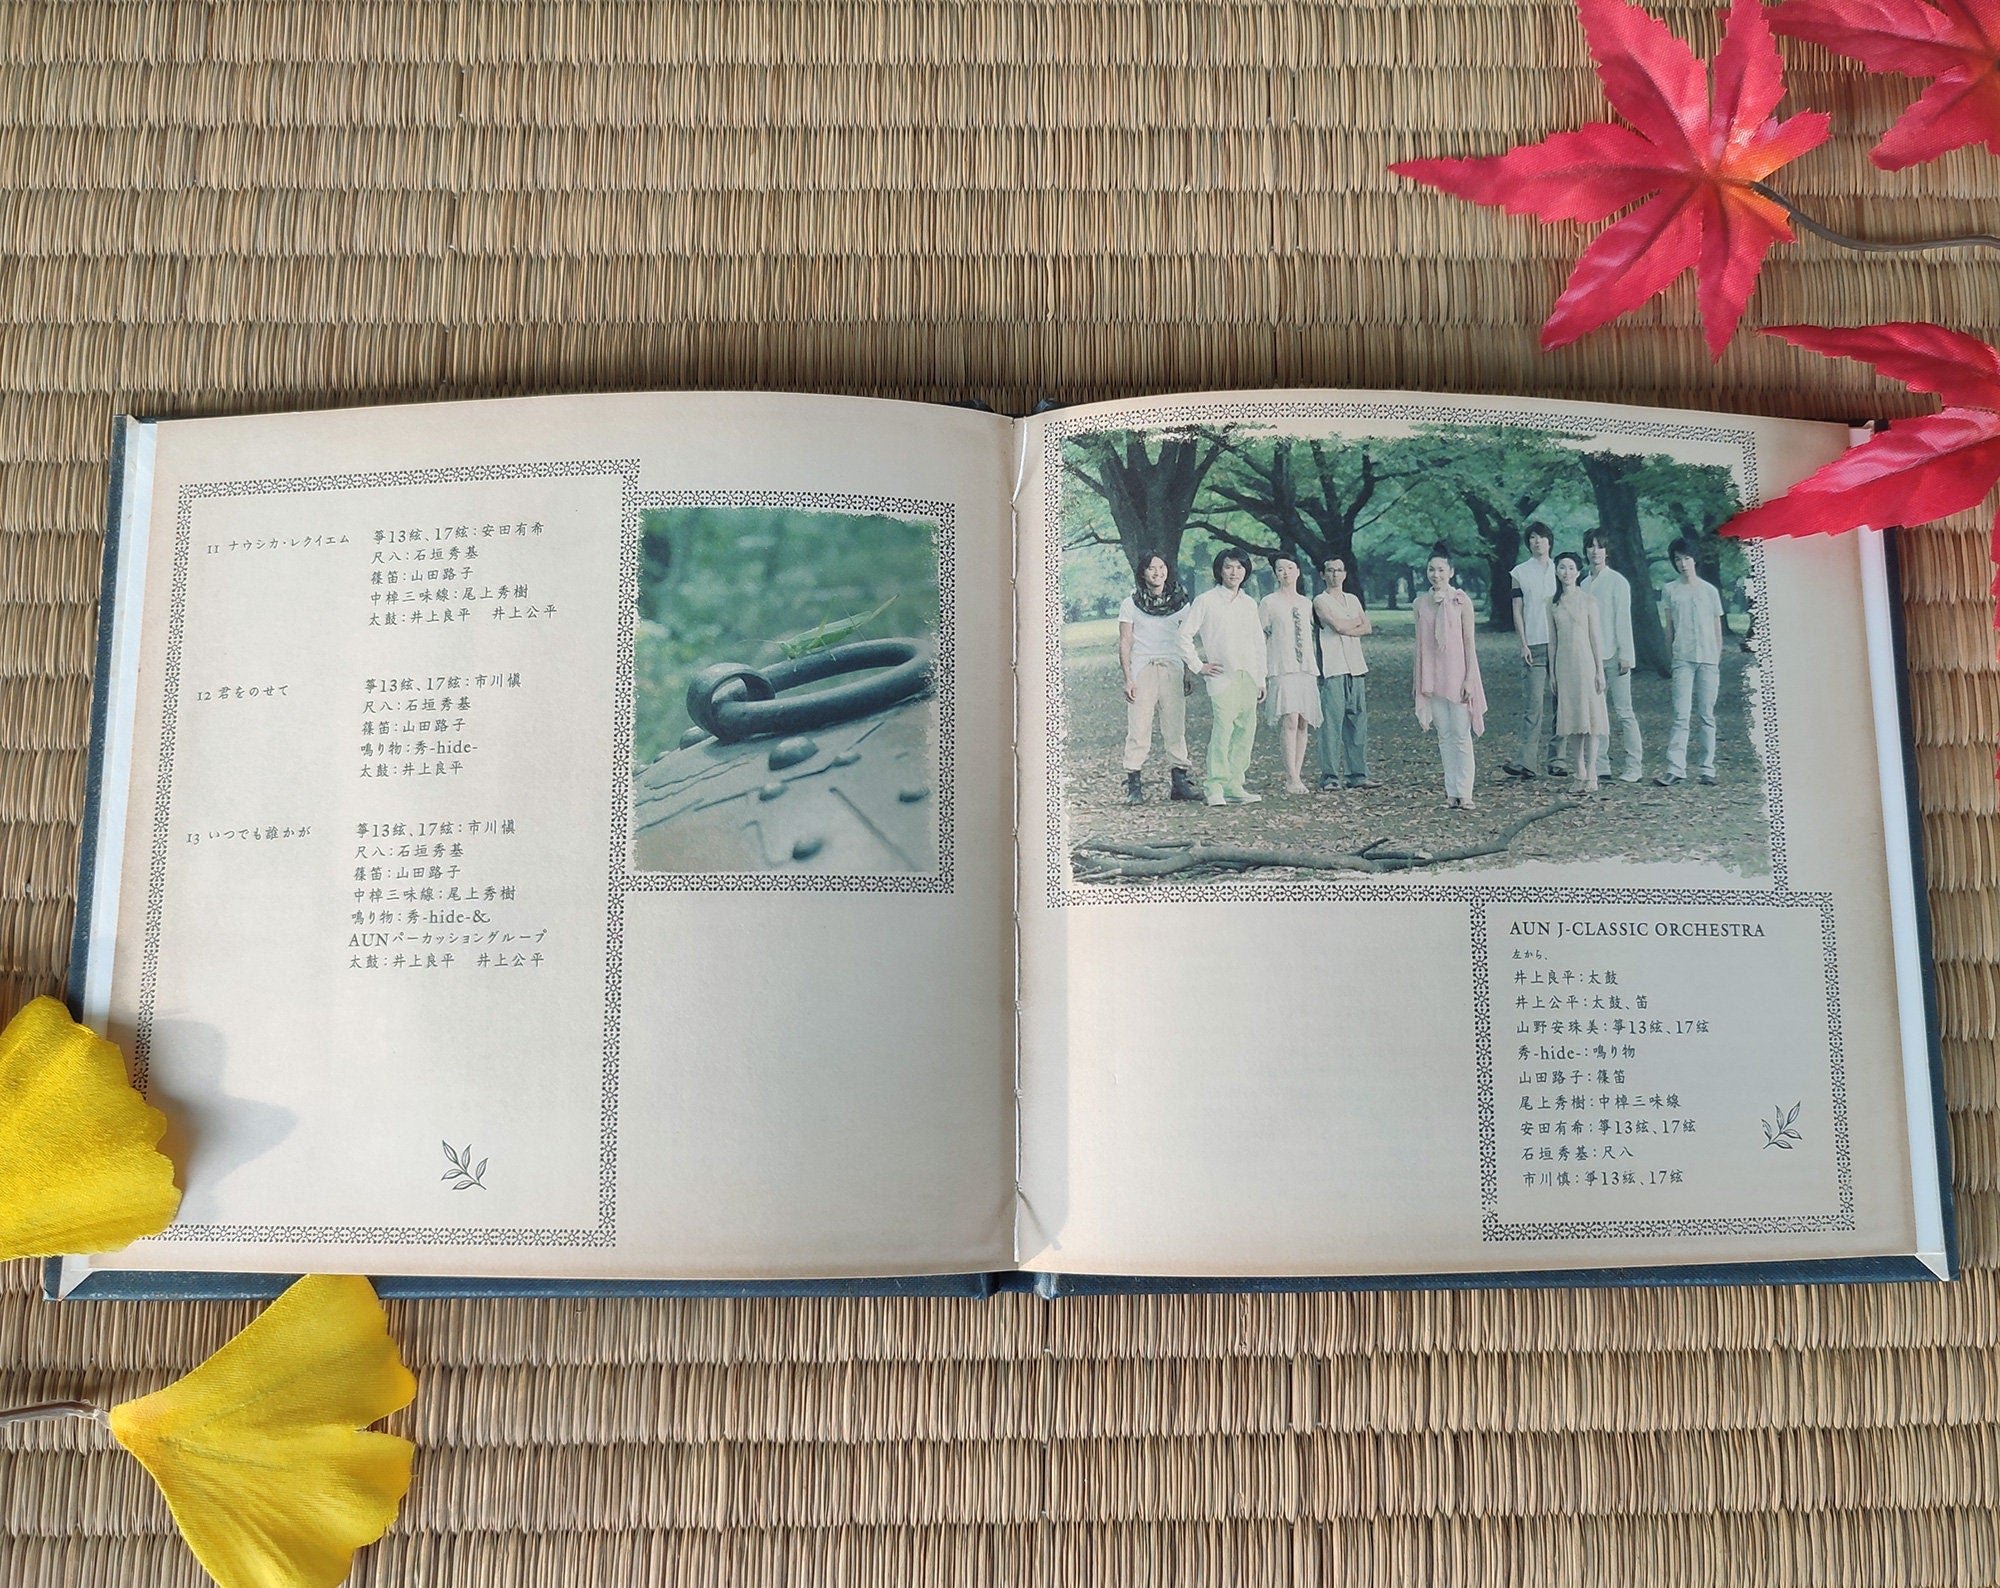 11 ナウシカ・レクイエム 箏13絃、17絃：安田有希
尺八：石垣秀基
篠笛：山田路子
中棹三味線：尾上秀樹
太鼓：井上良平 井上公平
12 君をのせて 箏13絃、17絃：市川慎
尺八：石垣秀基
篠笛：山田路子
鳴り物：秀-hide-
太鼓：井上良平
13 いつでも誰かが 箏13絃、17絃：市川慎
尺八：石垣秀基
篠笛：山田路子
中棹三味線：尾上秀樹
鳴り物：秀-hide-&
AUNパーカッショングループ
太鼓：井上良平 井上公平
AUN J-CLASSIC ORCHESTRA
左から、
井上良平：太鼓
井上公平：太鼓、笛
山野安珠美：箏13絃、17絃
秀-hide-：鳴り物
山田路子：篠笛
尾上秀樹：中棹三味線
安田有希：箏13絃、17絃
石垣秀基：尺八
市川慎：箏13絃、17絃